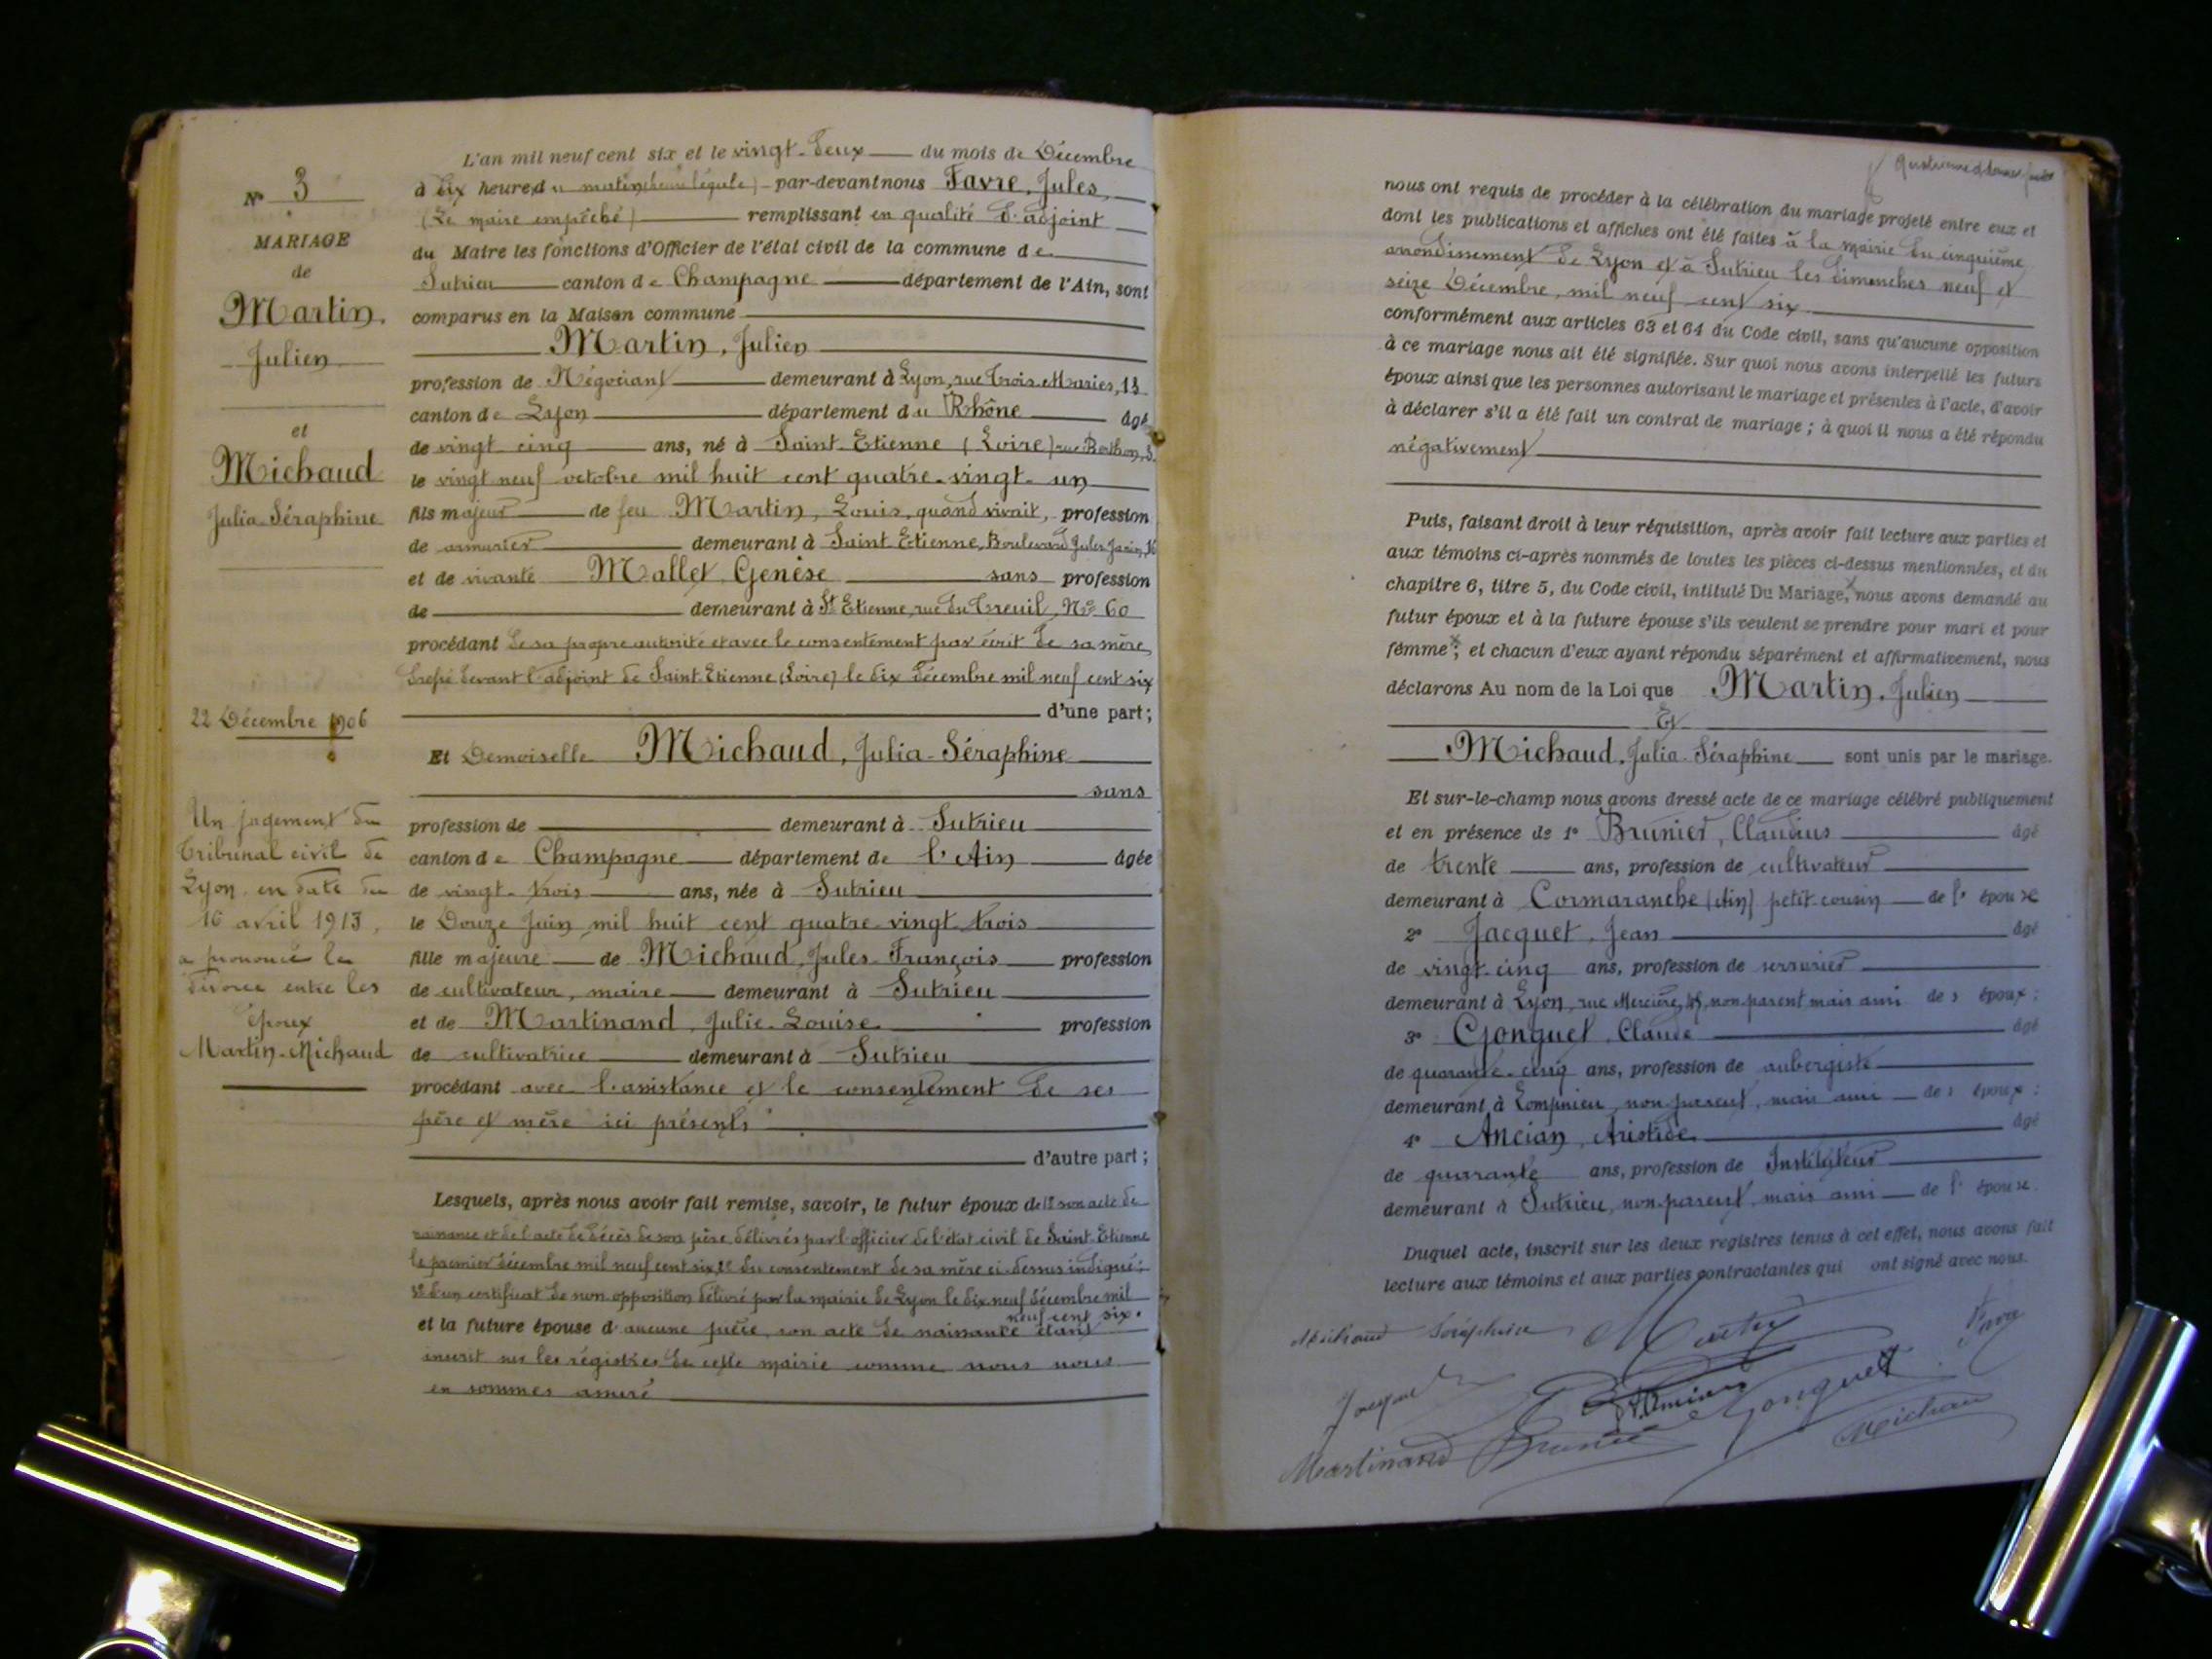 N° 3
MARIAGE
de
Martin
Julien
et
Michaud
Julia-Séraphine
22 Décembre 1906
Un jugement du
Tribunal civil de
Lyon en date du
16 avril 1913,
a prononcé le
divorce entre les
époux
Martin-Michaud
L'an mil neuf cent six et le vingt-deux du mois de Décembre
à dix heures du matin (heure légale) par-devant nous Favre, Jules,
(Le maire empêché) remplissant en qualité d'adjoint
du Maire les fonctions d'Officier de l'état civil de la commune de
Sutrieu canton de Champagne département de l'Ain, sont
comparus en la Maison commune
Martin, Julien
profession de Négociant demeurant à Lyon, rue Trois-Maries, 13
canton de Lyon département du Rhône âgé
de vingt cinq ans, né à Saint-Etienne (Loire) rue Berthon, 3.
le vingt neuf octobre mil huit cent quatre-vingt-un
fils majeur de feu Martin, Louis, quand vivait, profession
de armurier demeurant à Saint-Etienne, Boulevard Jules Janin, 16
et de vivante Mallet, Genèse sans profession
de demeurant à St Etienne, rue du Treuil, No 60
procédant de sa propre autorité et avec le consentement par écrit de sa mère,
dressé devant l'adjoint de Saint-Etienne (Loire) le dix décembre mil neuf cent six
d'une part;
Et Demoiselle Michaud, Julia-Séraphine
sans
profession de demeurant à Sutrieu
canton de Champagne département de l'Ain âgée
de vingt-trois ans, née à Sutrieu
le Douze Juin mil huit cent quatre-vingt-trois
fille majeure de Michaud, Jules-François profession
de cultivateur, maire demeurant à Sutrieu
et de Martinand, Julie-Louise profession
de cultivatrice demeurant à Sutrieu
procédant avec l'assistance et le consentement de ses
père et mère ici présents
d'autre part;
Lesquels, après nous avoir fait remise, savoir, le futur époux de 1° son acte de
naissance et de l'acte de décès de son père délivrés par l'officier de l'état civil de Saint-Etienne
le premier décembre mil neuf cent six, 2° du consentement de sa mère ci-dessus indiqué;
3° d'un certificat de non opposition délivré par la mairie de Lyon le dix-neuf décembre mil
neuf cent six.
et la future épouse d'aucune pièce, son acte de naissance étant
inscrit sur les régistres de cette mairie comme nous nous
en sommes assuré
nous ont requis de procéder à la célébration du mariage projeté entre eux et
dont les publications et affiches ont été faites à la mairie du cinquième
arrondissement de Lyon et à Sutrieu les dimanches neuf et
seize Décembre, mil neuf cent six
conformément aux articles 63 et 64 du Code civil, sans qu'aucune opposition
à ce mariage nous ait été signifiée. Sur quoi nous avons interpellé les futurs
époux ainsi que les personnes autorisant le mariage et présentes à l'acte, d'avoir
à déclarer s'il a été fait un contrat de mariage; à quoi il nous a été répondu
négativement
Puis, faisant droit à leur réquisition, après avoir fait lecture aux parties et
aux témoins ci-après nommés de toutes les pièces ci-dessus mentionnées, et du
chapitre 6, titre 5, du Code civil, intitulé Du Mariage, nous avons demandé au
futur époux et à la future épouse s'ils veulent se prendre pour mari et pour
femme; et chacun d'eux ayant répondu séparément et affirmativement, nous
déclarons Au nom de la Loi que Martin, Julien
Et
Michaud, Julia-Séraphine sont unis par le mariage.
Et sur-le-champ nous avons dressé acte de ce mariage célébré publiquement
et en présence de 1° Brunier, Claudius âgé
de trente ans, profession de cultivateur
demeurant à Cormaranche (Ain) petit-cousin de l'épouse
2° Jacquet, Jean âgé
de vingt-cinq ans, profession de serrurier
demeurant à Lyon, rue Mercière, non parent mais ami de s époux:
3° Gonguet, Claude âgé
de quarante-cinq ans, profession de aubergiste
demeurant à Lompnieu, non parent, mais ami de s époux:
4° Ancian, Aristide âgé
de quarante ans, profession de Instituteur
demeurant à Sutrieu, non parent, mais ami de l'épouse.
Duquel acte, inscrit sur les deux registres tenus à cet effet, nous avons fait
lecture aux témoins et aux parties contractantes qui ont signé avec nous.
Michaud Séraphine Martin Favre
Jacquet A. Ancian Gonguet
Martinand Brunier Michaud